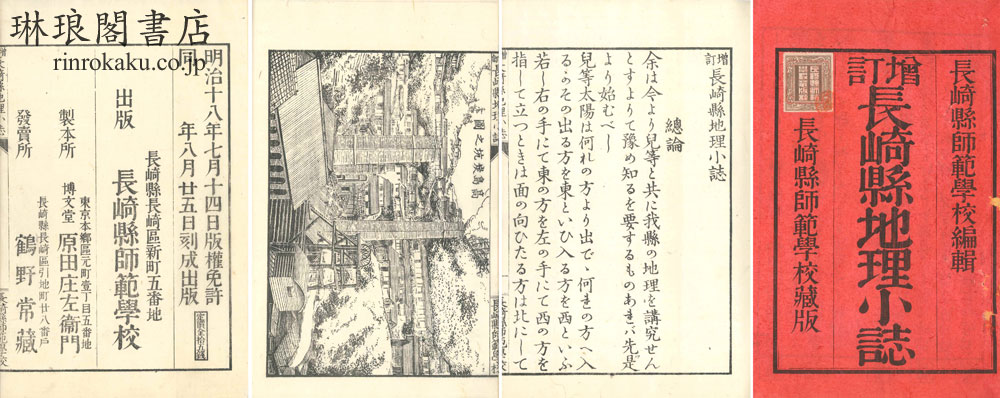 琳琅閣書店
rinrokaku.co.jp
長崎縣師範學校編輯
増訂
長崎縣地理小誌
長崎縣師範學校藏版
増訂長崎縣地理小誌
總論
余は今より兒等と共に我縣の地理を講究せん
とすよりて豫め知るを要するものあれバ先是
より始むべし
兒等太陽は何れの方より出で、何きの方へ入
るやその出る方を東といひ入る方を西といふ
若し右の手にて東の方を左の手にて西の方を
指して立つときは面の向ひたる方は北にして
高島炭坑之圖
明治十八年七月十四日版權免許
同年八月廿五日刻成出版
定價金拾五錢
長崎縣長崎區新町五番地
出版 長崎縣師範學校
東京本鄕區元町壹丁目五番地
製本所 博文堂 原田庄左衞門
長崎縣長崎區引地町廿八番戶
發賣所 鶴野常藏